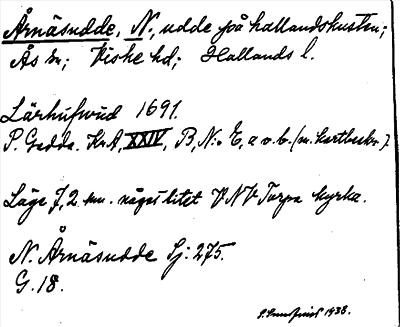 Årnäsudde, N., udde på hallandskusten;
Ås sn; Viske hd; Hallands l.
Lärhufwud 1691.
P. Gedda. KrA, XXIV, B, N:o E, a o. b. (m. kartbeskr.)
Läge 7,2 km. något litet VNV Torpa kyrka.
N. Årnäsudde Sj: 275.
G. 18.
1938.